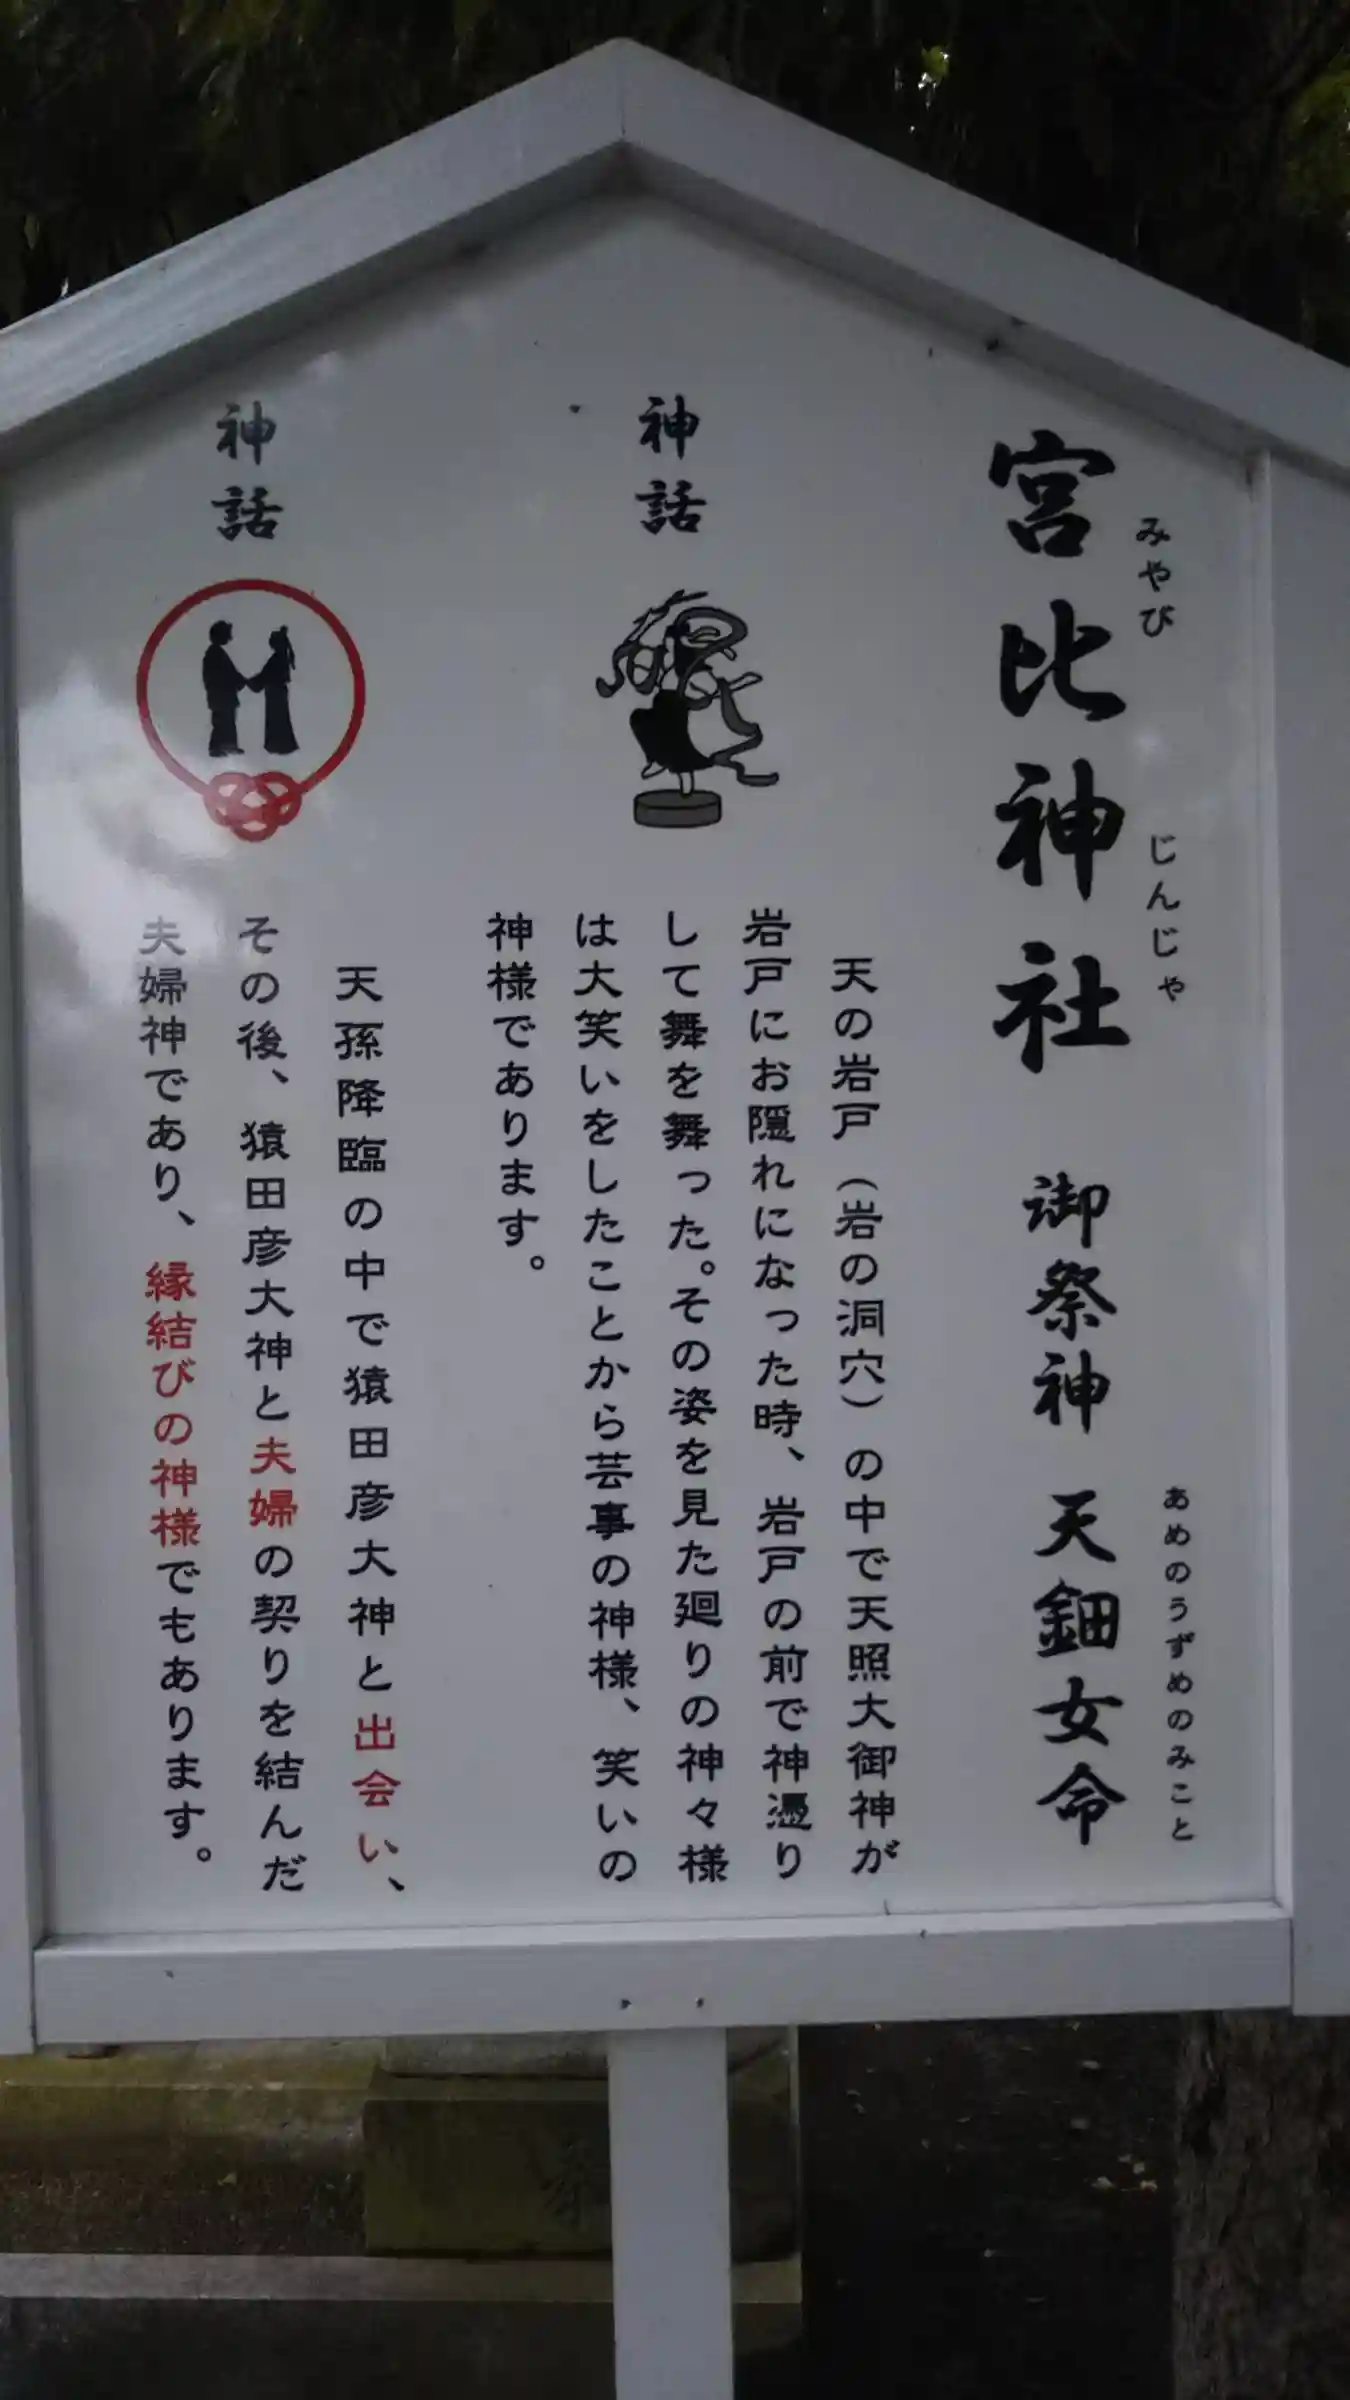 宮比神社 御祭神 天鈿女命
みやび じんじゃ あめのうずめのみこと
神話
天の岩戸(岩の洞穴)の中で天照大御神が
岩戸にお隠れになった時、岩戸の前で神憑り
して舞を舞った。その姿を見た廻りの神々様
は大笑いをしたことから芸事の神様、笑いの
神様であります。
神話
天孫降臨の中で猿田彦大神と出会い、
その後、猿田彦大神と夫婦の契りを結んだ
夫婦神であり、縁結びの神様でもあります。